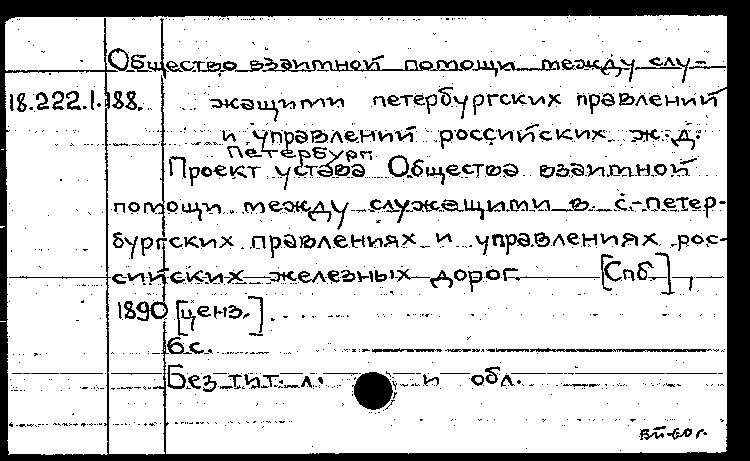 Общество взаимной помощи между слу-
18.222.1.188. жащими петербургских правлений
и управлений российских ж.д.
Петербург
Проект устава Общества взаимной
помощи между служащими в с.-петер-
бургских правлениях и управлениях рос-
сийских железных дорог. [Спб.],
1890 [ценз.]
6 с.
Без тит. л. и обл.
ВП-60 г.